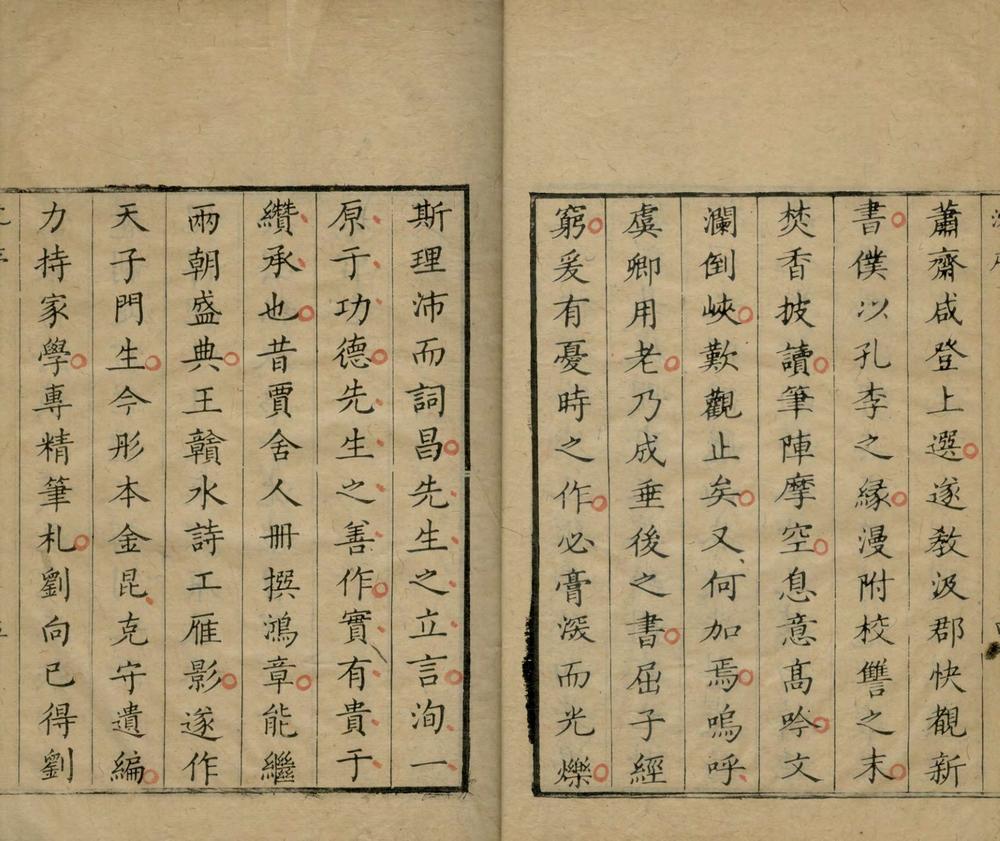 蕭齋咸登上選遂教汲郡快覩新
書僕以孔李之緣漫附校讐之末
焚香披讀筆陣摩空息意高吟文
瀾倒峽歎觀止矣又何加焉嗚呼
虞卿用老乃成垂後之書屈子經
窮爰有憂時之作必膏深而光爍
斯理沛而詞昌先生之立言洵一
原于功德先生之善作實有貴于
纘承也昔賈舍人冊撰鴻章能繼
兩朝盛典王贛水詩工雁影遂作
天子門生今彤本金昆克守遺編
力持家學專精筆札劉向已得劉